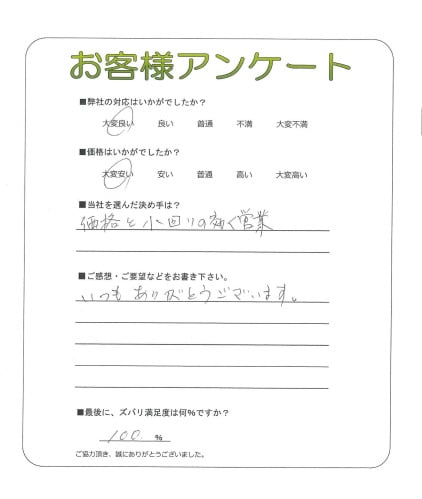 お客様アンケート
■弊社の対応はいかがでしたか？
大変良い 良い 普通 不満 大変不満
■価格はいかがでしたか？
大変安い 安い 普通 高い 大変高い
■当社を選んだ決め手は？
価格と小回りの効く営業
■ご感想・ご要望などをお書き下さい。
いつもありがとうございます。
■最後に、ズバリ満足度は何％ですか？
100 ％
ご協力頂き、誠にありがとうございました。